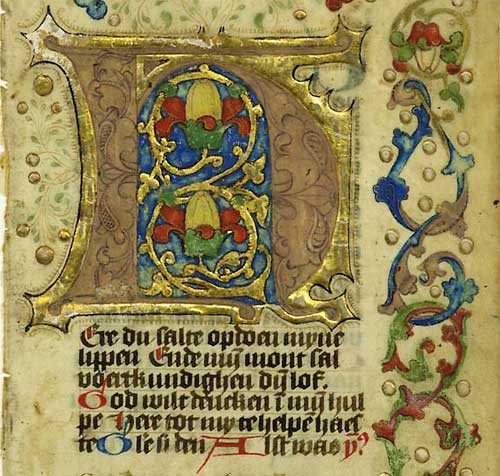 HEre du salte opdoen myne
lippen Ende mijn mont sal
voertkundighen dijn lof.
God wilt dencken ī mijn hul
pe Here tot my te helpe haes
te Gle si den Alst was